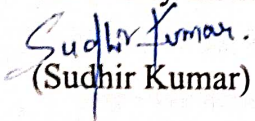 Sudhir Kumar.
(Sudhir Kumar)